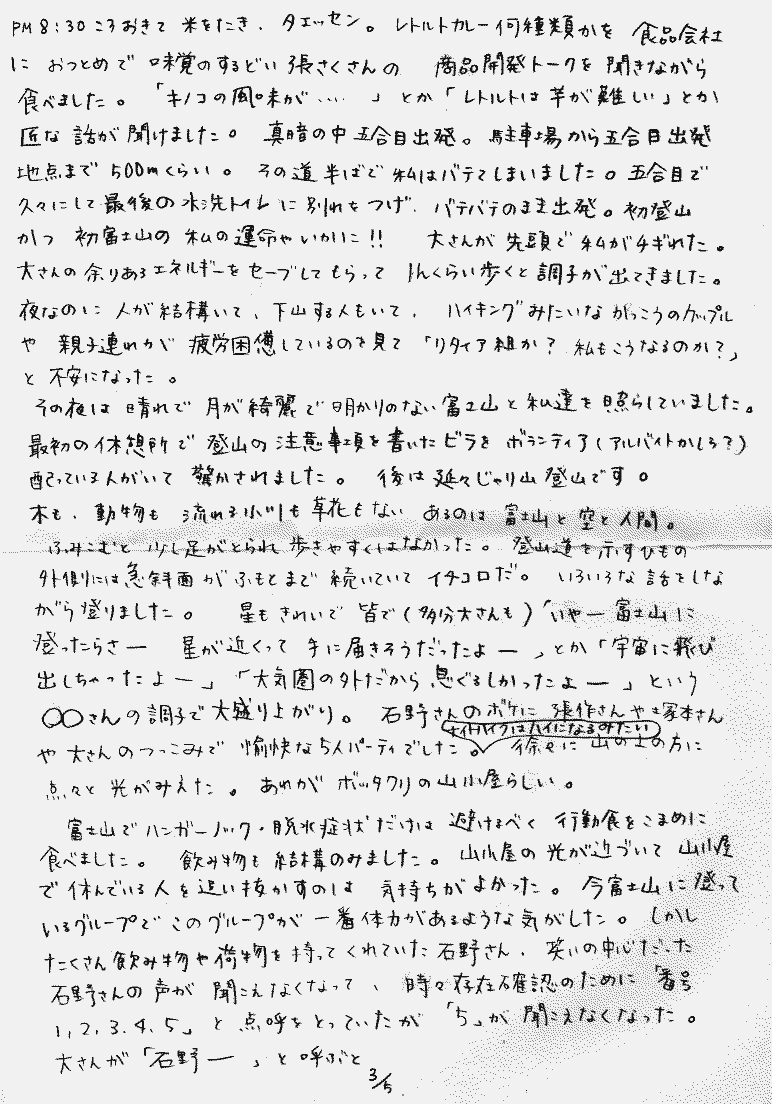 PM 8:30 ころおきて 米をたき、タエッセン。 レトルトカレー何種類かを 食品会社
に おつとめで 味覚のするどい 張さくさんの 商品開発トークを 聞きながら
食べました。 「キノコの風味が‥‥ 」とか「レトルトは芋が難しい」とか
匠な 話が 聞けました。 真暗の中 五合目出発。 駐車場から五合目出発
地点まで 500mくらい。 その道半ばで 私はバテてしまいました。五合目で
久々にして最後の水洗トイレに別れをつげ、バテバテのまま出発。初登山
かつ 初富士山の 私の運命やいかに!! 大さんが 先頭で 私がチギれた。
大さんの余りあるエネルギーを セーブしてもらって 1hくらい歩くと調子が出てきました。
夜なのに 人が結構いて、下山する人もいて、 ハイキングみたいな かっこうのカップル
や 親子連れが 疲労困憊しているのを見て 「リタイア組か? 私もこうなるのか?」
と 不安になった。
その夜は 晴れで 月が綺麗で 明かりのない 富士山と 私達を 照らしていました。
最初の休憩所で 登山の注意事項を書いたビラを ボランティア(アルバイトかしら?)
配っている人がいて 驚かされました。 後は 延々じゃり山 登山です。
木も、動物も 流れる小川も 草花もない あるのは 富士山と 空と 人間。
ふみこむと 少し足がとられ 歩きやすくはなかった。 登山道を示すひもの
外側には急斜面がふもとまで 続いていて イチコロだ。 いろいろな 話をしな
がら登りました。 星もきれいで 皆で(多分大さんも)「いやー富士山に
登ったらさー 星が近くって 手に届きそうだったよー 」とか「宇宙に飛び
出しちゃったよー」「大気圏の外だから 息ぐるしかったよー 」という
○○さんの調子で大盛り上がり。 石野さんのボケに 張作さんや塚本さん
ナイトハイクはハイになるみたい
や 大さんの つっこみで 愉快な5人パーティでした。 徐々に 山の上の方に
点々と 光がみえた。 あれが ボッタクリの山小屋らしい。
富士山でハンガーノック・脱水症状だけは 避けるべく 行動食をこまめに
食べました。 飲み物も 結構のみました。山小屋の 光が近づいて 山小屋
で 休んでいる 人を 追い抜かすのは 気持ちがよかった。今富士山に登って
いるグループで このグループが 一番体力があるような気がした。しかし
たくさん飲み物や荷物を持ってくれていた石野さん、笑いの中心だった
石野さんの声が 聞こえなくなって、 時々存在確認のために 「番号
1,2,3,4,5」と 点呼をとっていたが 「5」が 聞こえなくなった。
大さんが「石野ー 」と 呼ぶと
3/5